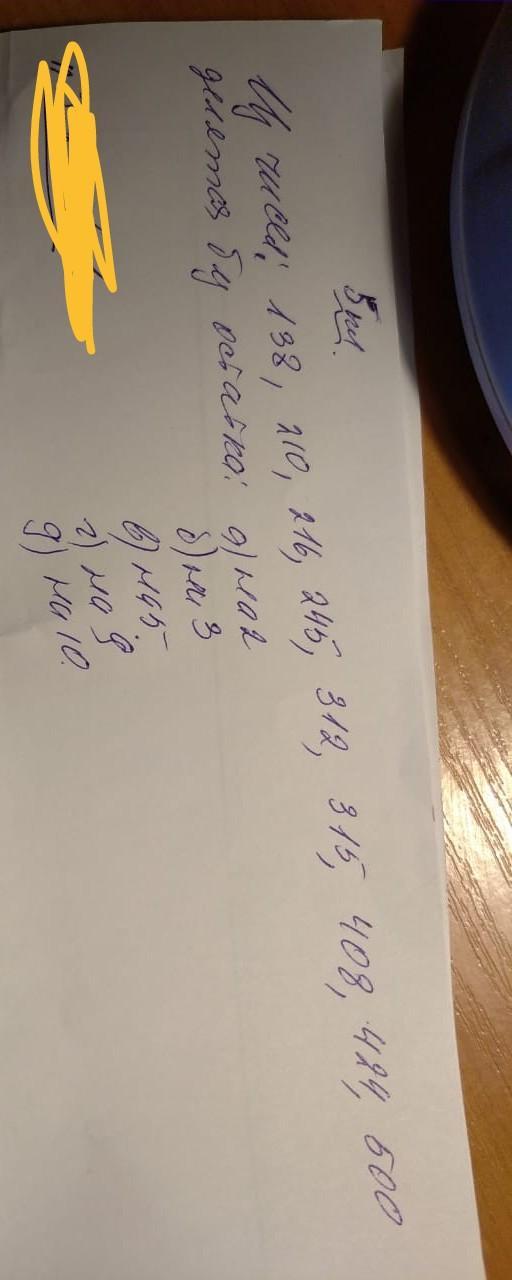 5 кл.
Из чисел: 138, 210, 216, 245, 312, 315, 408, 424, 500
делятся без остатка: а) на 2
б) на 3
в) на 5
г) на 9
д) на 10.